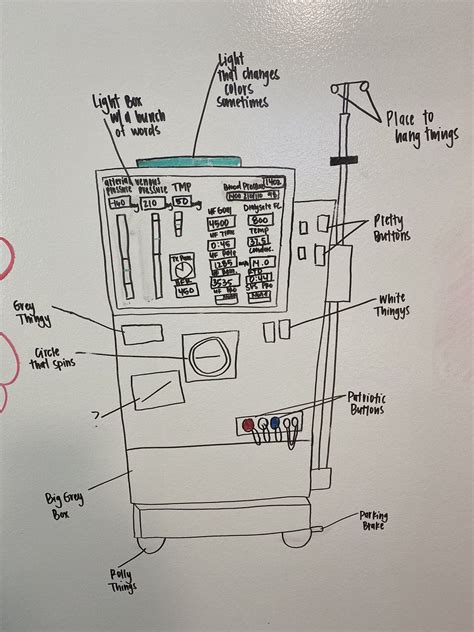 Light
that changes
colors
sometimes
Light Box
w/ a bunch
of words
Place to
hang things
arterial
pressure
venous
pressure
TMP
Blood Pressure
-160
210
50
UF Goal
4500
UF Time
0:45
UF Rate
1285
UF Rem.
3535
Dialysate FL
800
Temp
37.5
Conduc.
14.0
RTD
0:44
450
Pretty
Buttons
Grey
Thingy
White
Thingys
Circle
that spins
?
Patriotic
Buttons
Big Grey
Box
Parking
Brake
Rolly
Things